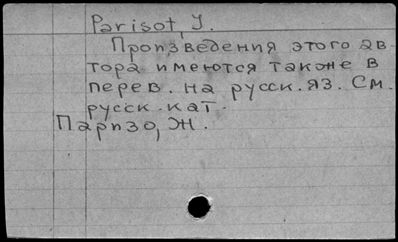 Parisot, J.
Произведения этого ав-
тора имеются также в
перев. на русск. яз. См.
русск. кат.
Паризо, Ж.